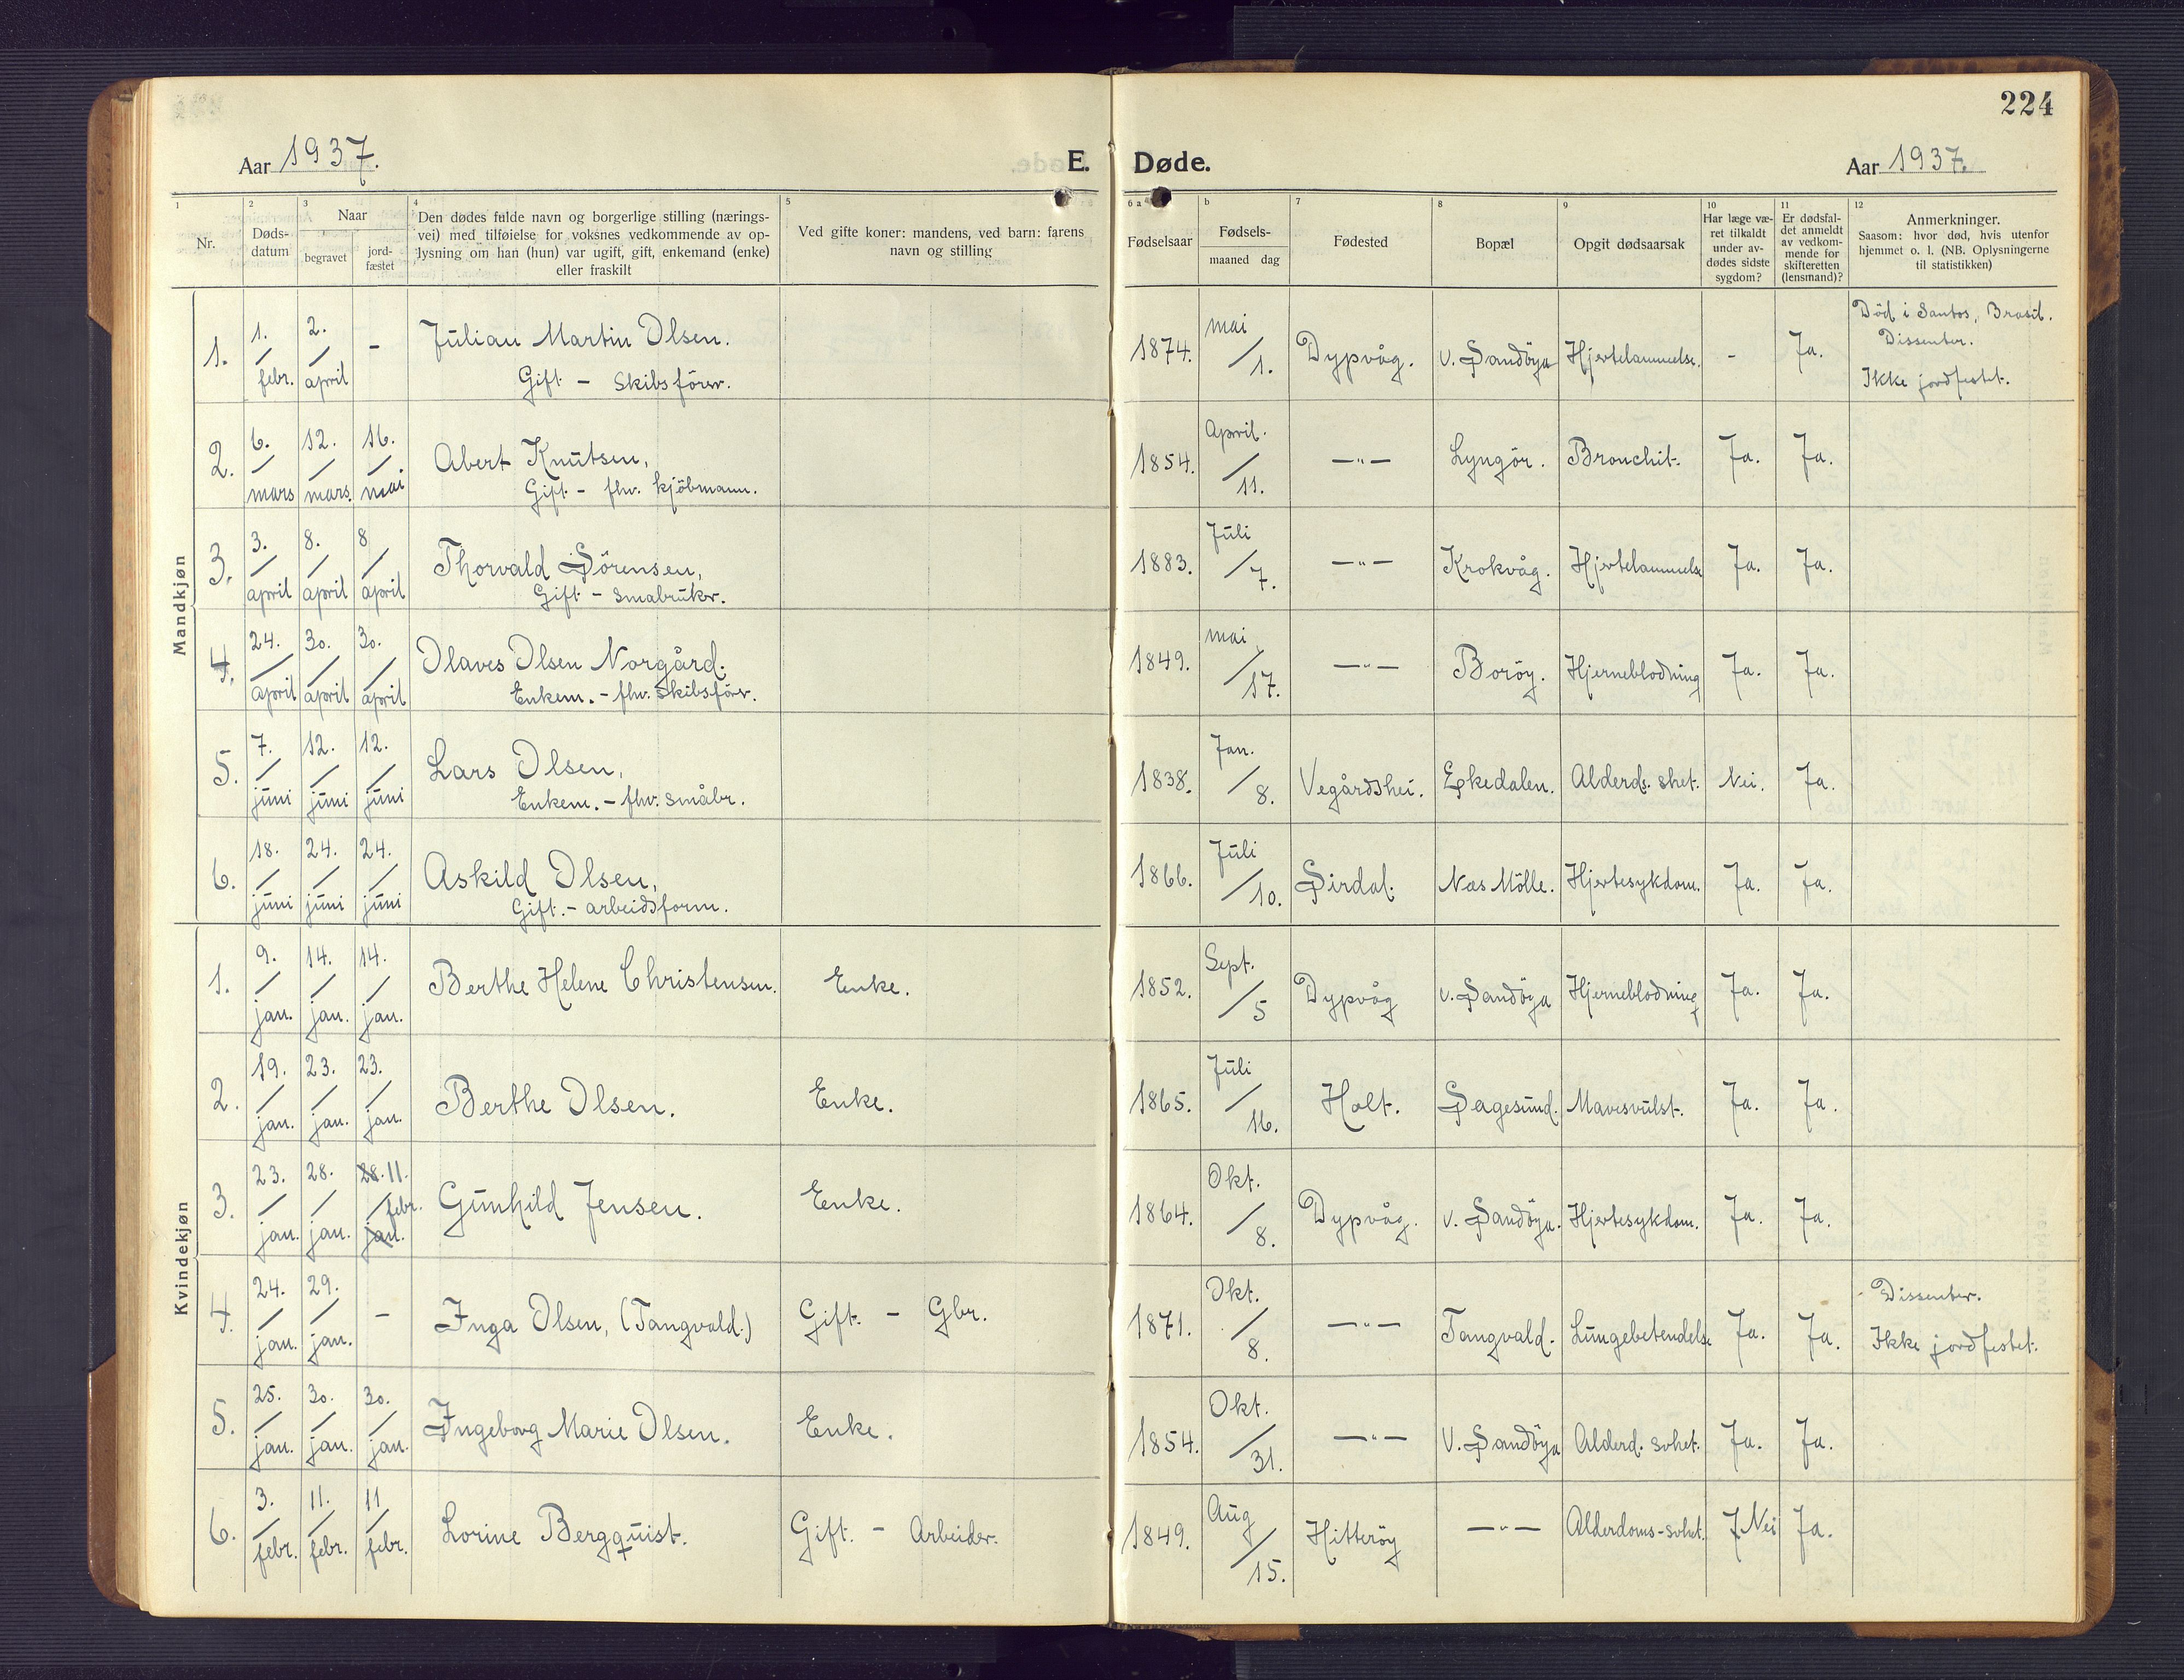 224
Aar 1937.
E. Døde.
Aar 1937.
1 Nr.
2 Dødsdatum
3 Naar
begravet
jordfæstet
4 Den dødes fulde navn og borgerlige stilling (næringsvei) med tilføielse for voksnes vedkommende av oplysning om han (hun) var ugift, gift, enkemand (enke) eller fraskilt
5 Ved gifte koner: mandens, ved barn: farens navn og stilling
6 a Fødselsaar
b Fødsels-
maaned dag
7 Fødested
8 Bopæl
9 Opgit dødsaarsak
10 Har læge været tilkaldt under avdødes sidste sygdom?
11 Er dødsfaldet anmeldt av vedkommende for skifteretten (lensmand)?
12 Anmerkninger.
Saasom: hvor død, hvis utenfor hjemmet o. l. (NB. Oplysningerne til statistikken)
Mandkjøn
1. 1./febr. 2./april - Julian Martin Olsen. Gift - Skibsförer. 1874. mai/1. Dypvåg. v. Sandöya Hjertelammelse. - Ja. Död i Santos, Brasil. Dissenter. Ikke jordfestet.
2. 6./mars 12./mars. 16./mai Abert Knutsen, Gift - fhv. kjöbmann. 1854. April./11. —"— Lyngör. Bronchit. Ja. Ja.
3. 3./april 8./april 8/april Thorvald Sörensen, Gift - smabruker. 1883. Juli/7. —"— Krokvåg. Hjertelammelse Ja. Ja.
4. 24./april 30./april 30./april Olaves Olsen Norgård. Enkem. - fhv. skibsförer. 1849. mai/17. —"— Boröy. Hjerneblodning Ja. Ja.
5. 7./juni 12./juni 12./juni Lars Olsen, Enkem. - fhv. småbr. 1838. Jan./8. Vegårdshei. Espkedalen. Alderds. shet. Nei. Ja.
6. 18./juni 24./juni 24./juni Askild Olsen, Gift. - arbeidsform. 1866. Juli/10. Sirdal. Næs Mölle. Hjertesykdom. Ja. Ja.
Kvindekjøn
1. 9./jan. 14./jan. 14./jan. Berthe Helene Christensen. Enke. 1852. Sept./5 Dypvåg v. Sandöya Hjerneblodning Ja. Ja.
2. 19./jan. 23./jan. 23./jan. Berthe Olsen. Enke. 1865. Juli/16. Holt. Sagesund. Mavesvulst. Ja. Ja.
3. 23./jan. 28./jan. 28. 11./febr. jan. Gunhild Jensen. Enke. 1864. Okt./8. Dypvåg. v. Sandöya. Hjertesykdom. Ja. Ja.
4. 24./jan. 29./jan. - Inga Olsen, (Tangvald.) Gift. - Gbr. 1871. Okt./8. —"— Tangvald. Lungebetendelse Ja. Ja. Dissenter. Ikke jordfestet.
5. 25./jan. 30./jan. 30./jan. Ingeborg Marie Olsen. Enke. 1854. Okt./31. —"— V. Sandöya Alderd. svhet. Ja. Ja.
6. 3./febr. 11./febr. 11/febr. Lorine Bergquist. Gift. - Arbeider. 1849. Aug/15. Hitteröy —"— Alderdoms-svhet. Nei Ja.